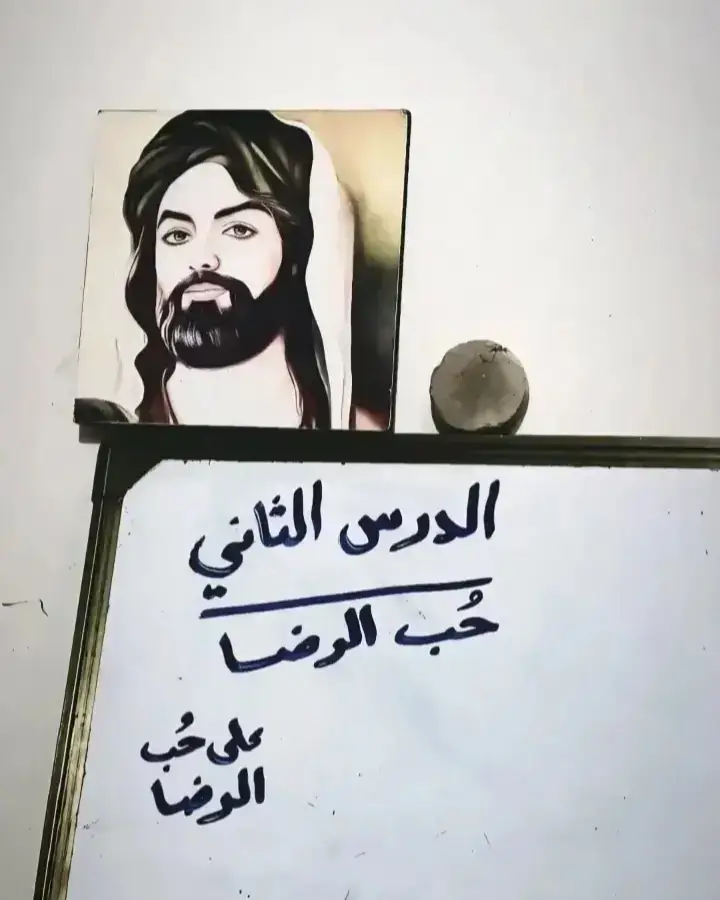 الدرس الثاني
حُب الرضا
على حُب
الرضا